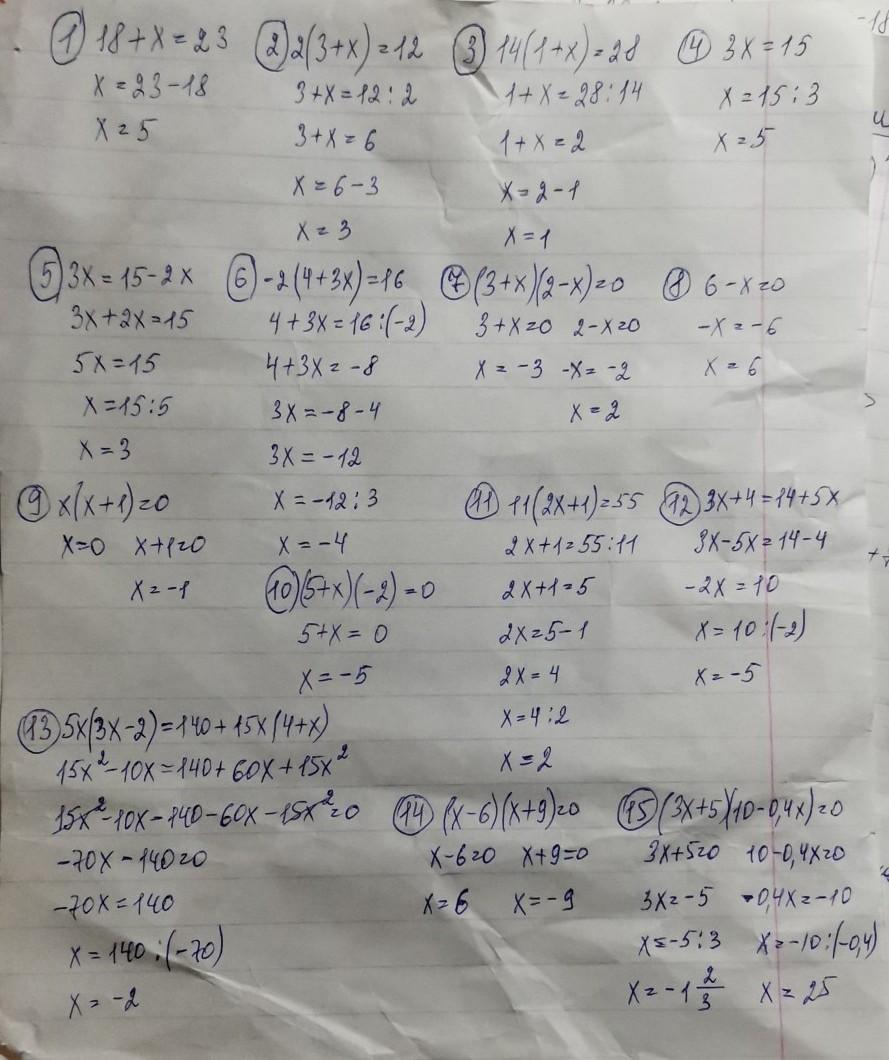 1 18+x=23
x=23-18
x=5
2 2(3+x)=12
3+x=12:2
3+x=6
x=6-3
x=3
3 14(1+x)=28
1+x=28:14
1+x=2
x=2-1
x=1
4 3x=15
x=15:3
x=5
5 3x=15-2x
3x+2x=15
5x=15
x=15:5
x=3
6 -2(4+3x)=16
4+3x=16:(-2)
4+3x=-8
3x=-8-4
3x=-12
x=-12:3
x=-4
7 (3+x)(2-x)=0
3+x=0 2-x=0
x=-3 -x=-2
x=2
8 6-x=0
-x=-6
x=6
9 x(x+1)=0
x=0 x+1=0
x=-1
10 (5+x)(-2)=0
5+x=0
x=-5
11 11(2x+1)=55
2x+1=55:11
2x+1=5
2x=5-1
2x=4
x=4:2
x=2
12 3x+4=14+5x
3x-5x=14-4
-2x=10
x=10:(-2)
x=-5
13 5x(3x-2)=140+15x(4+x)
15x²-10x=140+60x+15x²
15x²-10x-140-60x-15x²=0
-70x-140=0
-70x=140
x=140:(-70)
x=-2
14 (x-6)(x+9)=0
x-6=0 x+9=0
x=6 x=-9
15 (3x+5)(10-0,4x)=0
3x+5=0 10-0,4x=0
3x=-5 -0,4x=-10
x=-5:3 x=-10:(-0,4)
x=-1 2/3 x=25